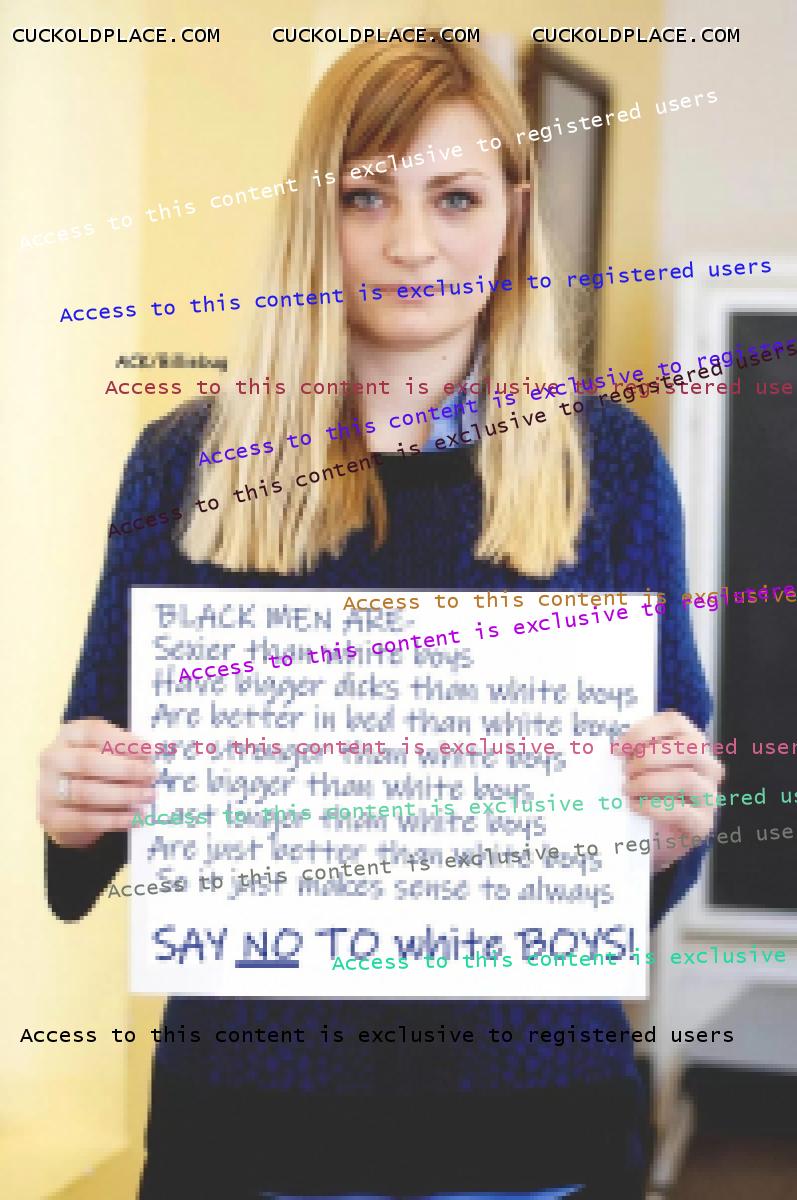 CUCKOLDPLACE.COM CUCKOLDPLACE.COM CUCKOLDPLACE.COM
Access to this content is exclusive to registered users
Access to this content is exclusive to registered users
Access to this content is exclusive to registered
Access to this content is exclusive to registered use
Access to this content is exclusive to registered users
BLACK MEN ARE-
Sexier than white boys
Have bigger dicks than white boys
Are better in bed than white boys
Are than white boys
Are bigger than white boys
Last longer than white boys
Are just better than white boys
So it just makes sense to always
SAY NO TO white BOYS!
Access to this content is exclusive
Access to this content is exclusive to registere
Access to this content is exclusive to registered user
Access to this content is exclusive to registered us
Access to this content is exclusive to registered use
Access to this content is exclusive
Access to this content is exclusive to registered users